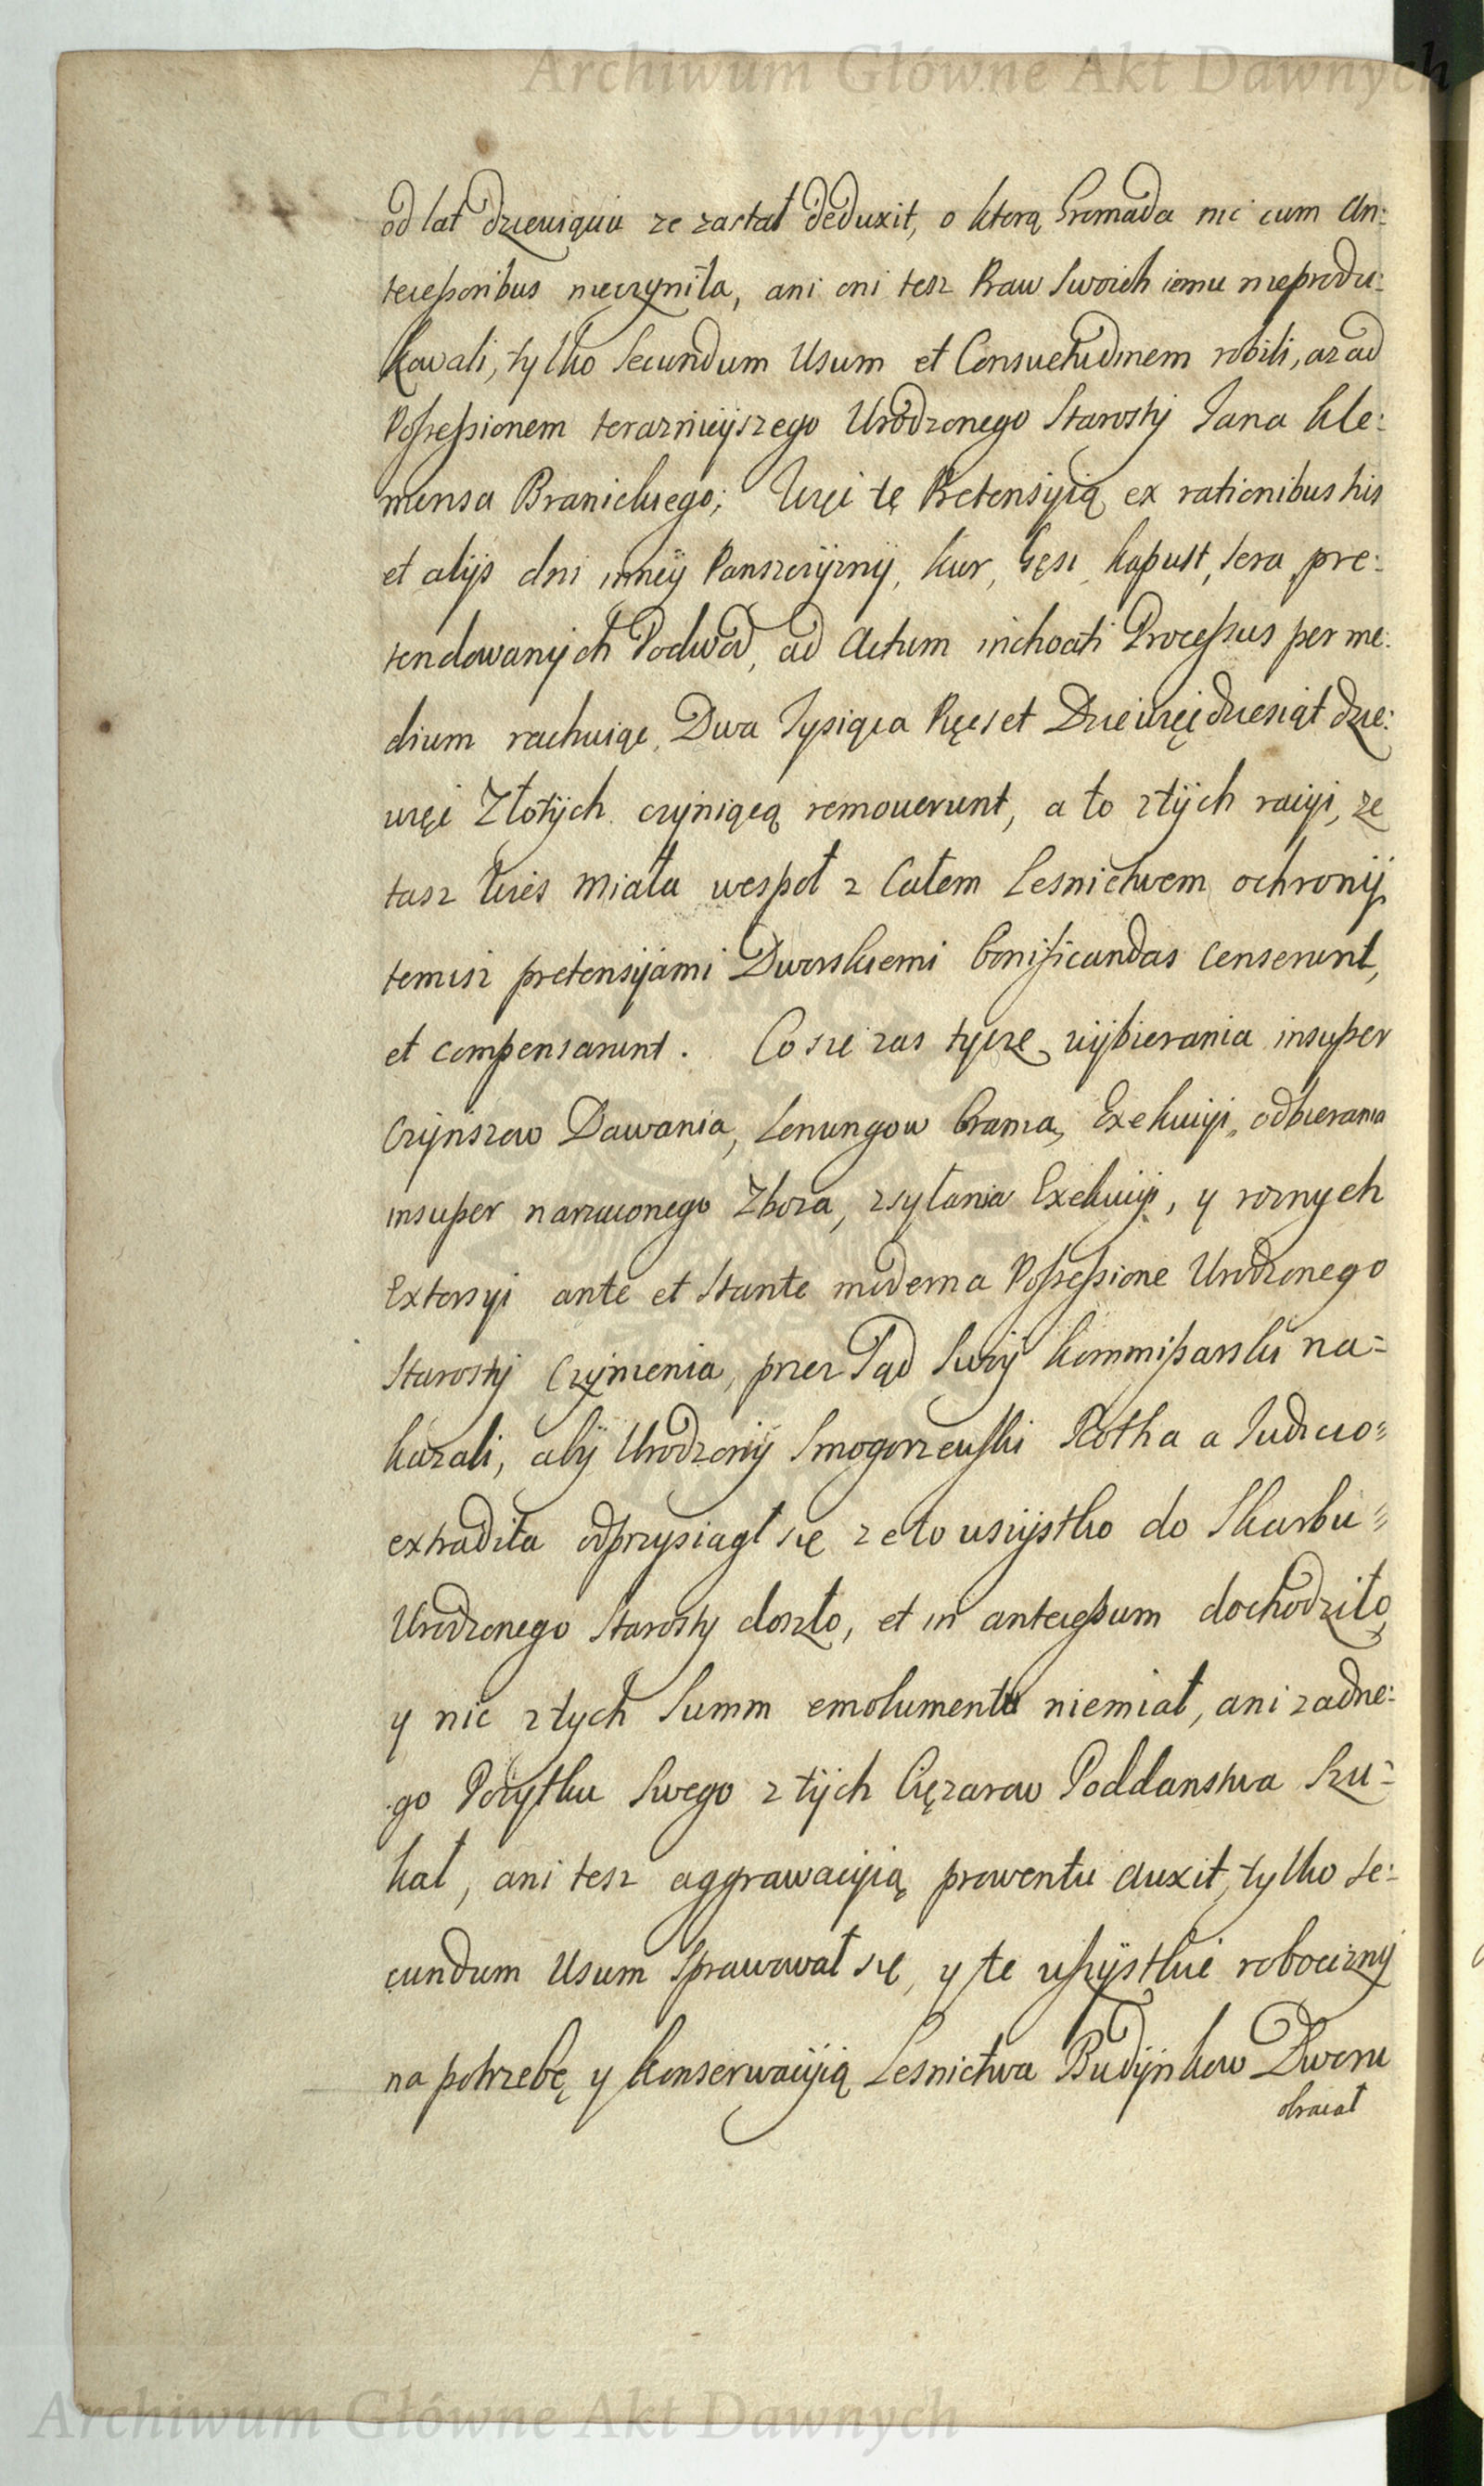 Archiwum Główne Akt Dawnych
od lat dziewiąciu ze zastał deduxit, o ktorą Gromada nic cum An:
tecessoribus nieczyniła, ani oni tesz Praw Swoich iemu nieprodu:
kowali, tylko Secundum Usum et Consuetudinem robili, az ad
Possessionem terazniejszego Urodzonego Starosty Jana Kle:
mensa Branickiego; Więc tę Pretensyią ex rationibus his
et alijs dni inney Panszczyzny, kur, Gęsi, kapust, sera, pre:
tendowanych Podwod, ad Actum inchoati Processus per me:
dium rachuiąc, Dwa Tysiąca Pęcset Dziewięćdziesiąt dzie:
więć Złotych czyniącą removerunt, a to z tych racyi, ze
tasz Wies miała wespoł z Całem Lesnictwem ochrony,
temisz pretensyjami Dworskiemi bonificandas Censerunt,
et compensarunt. Co się zas tycze wybierania insuper
Czynszow Dawania, Lenungow brania, Exekucyi, odbierania
insuper narzuconego Zboza, zsyłania Exekucyi, y roznych
Extorsyi ante et Stante moderna Possessione Urodzonego
Starosty Czynienia, przez Sąd Swoy Kommissarski na=
kazali, aby Urodzony Smogorzewski Rotha a Judicio=
extradita odprzysiągł się ze to wszystko do Skarbu=
Urodzonego Starosty doszło, et in antecessum dochodziło,
y nic z tych Summ emolumentu niemiał, ani zadne:
go Pozytku Swego z tych Cięzarow Poddanstwa Szu=
kał, ani tesz aggrawacyią prowentu auxit, tylko Se:
cundum Usum Sprawował się, y te wszystkie robocizny
na potrzebę y konserwacyią Lesnictwa Budynkow Dworu
obracał
Archiwum Główne Akt Dawnych